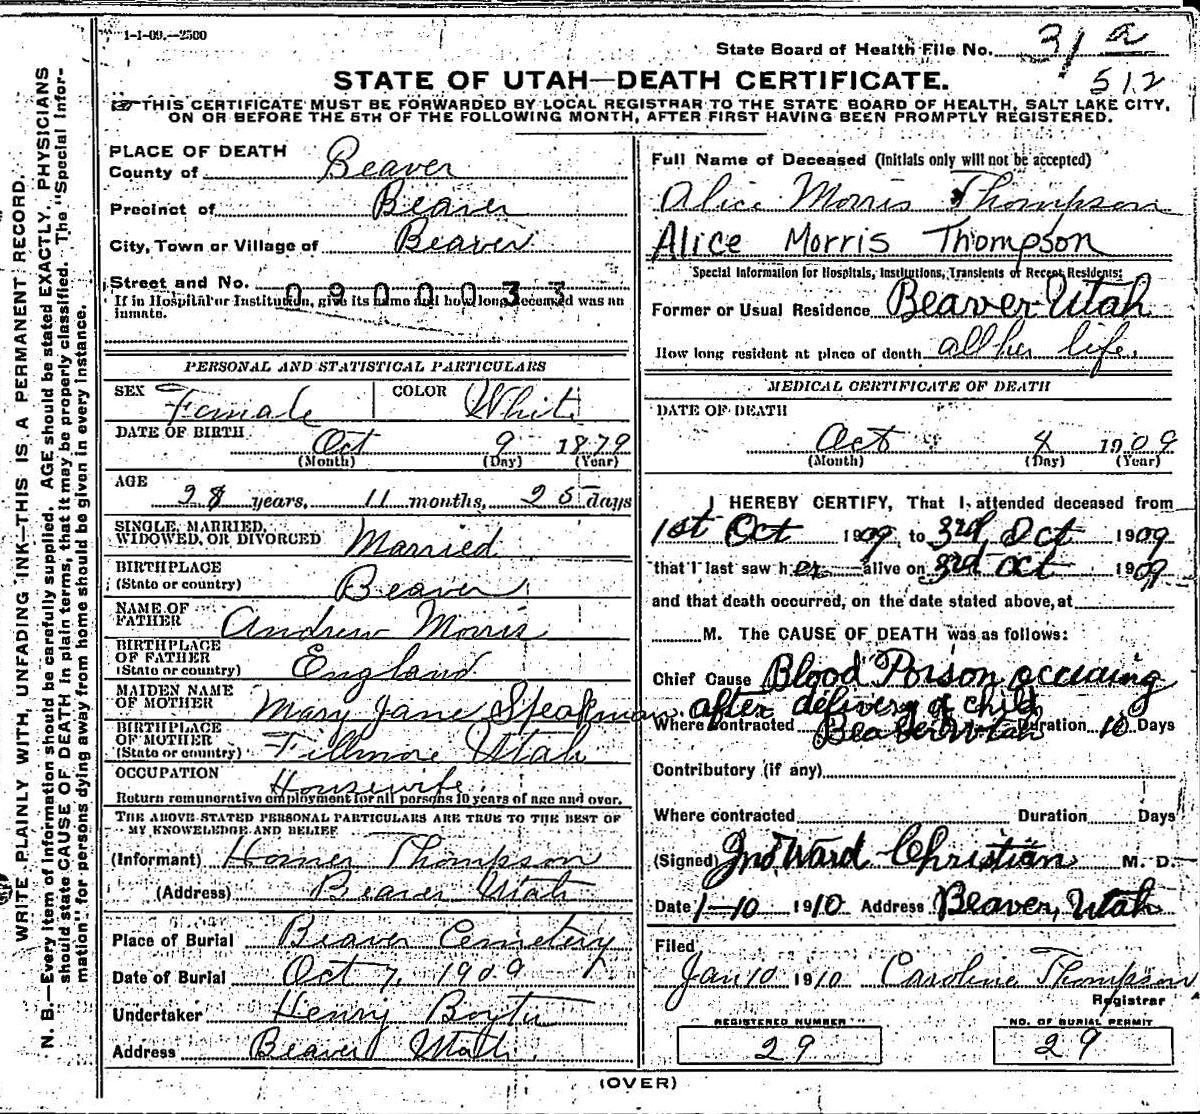 1-1-09.—2500
State Board of Health File No. 31 a
512
STATE OF UTAH—DEATH CERTIFICATE.
THIS CERTIFICATE MUST BE FORWARDED BY LOCAL REGISTRAR TO THE STATE BOARD OF HEALTH, SALT LAKE CITY,
ON OR BEFORE THE 5TH OF THE FOLLOWING MONTH, AFTER FIRST HAVING BEEN PROMPTLY REGISTERED.
WRITE PLAINLY WITH UNFADING INK—THIS IS A PERMANENT RECORD.
N. B.—Every item of information should be carefully supplied. AGE should be stated EXACTLY. PHYSICIANS
should state CAUSE OF DEATH in plain terms, that it may be properly classified. The "Special Infor-
mation" for persons dying away from home should be given in every instance.
PLACE OF DEATH
County of Beaver
Precinct of Beaver
City, Town or Village of Beaver
Street and No.
0900033
If in Hospital or Institution, give its name and how long deceased was an
inmate.
PERSONAL AND STATISTICAL PARTICULARS
SEX Female COLOR White
DATE OF BIRTH Oct 9 1879
(Month) (Day) (Year)
AGE
28 years, 11 months, 25 days
SINGLE, MARRIED,
WIDOWED, OR DIVORCED Married
BIRTHPLACE
(State or country) Beaver
NAME OF
FATHER Andrew Morris
BIRTHPLACE
OF FATHER
(State or country) England
MAIDEN NAME
OF MOTHER Mary Jane Speakman
BIRTHPLACE
OF MOTHER
(State or country) Fillmore Utah
OCCUPATION Housewife
Return remunerative employment for all persons 10 years of age and over.
THE ABOVE STATED PERSONAL PARTICULARS ARE TRUE TO THE BEST OF
MY KNOWLEDGE AND BELIEF
(Informant) Homer Thompson
(Address) Beaver Utah
Place of Burial Beaver Cemetery
Date of Burial Oct 7, 1909
Undertaker Henry
Address Beaver Utah
Full Name of Deceased (Initials only will not be accepted)
Alice Morris Thompson
Alice Morris Thompson
Special Information for Hospitals, Institutions, Transients or Recent Residents:
Former or Usual Residence Beaver Utah
How long resident at place of death all her life.
MEDICAL CERTIFICATE OF DEATH
DATE OF DEATH
Oct 8 1909
(Month) (Day) (Year)
I HEREBY CERTIFY, That I attended deceased from
1st Oct 1909, to 3rd Oct 1909
that I last saw her alive on 3rd Oct 1909
and that death occurred, on the date stated above, at
M. The CAUSE OF DEATH was as follows:
Chief Cause Blood Poison occuring
after delivery of child
Where contracted Beaver Utah Duration 10 Days
Contributory (if any)
Where contracted Duration Days
(Signed) Jno. Ward Christian M. D.
Date 1-10 1910 Address Beaver, Utah
Filed
Jan 10 1910 Caroline Thompson
Registrar
REGISTERED NUMBER
29
NO. OF BURIAL PERMIT
29
(OVER)